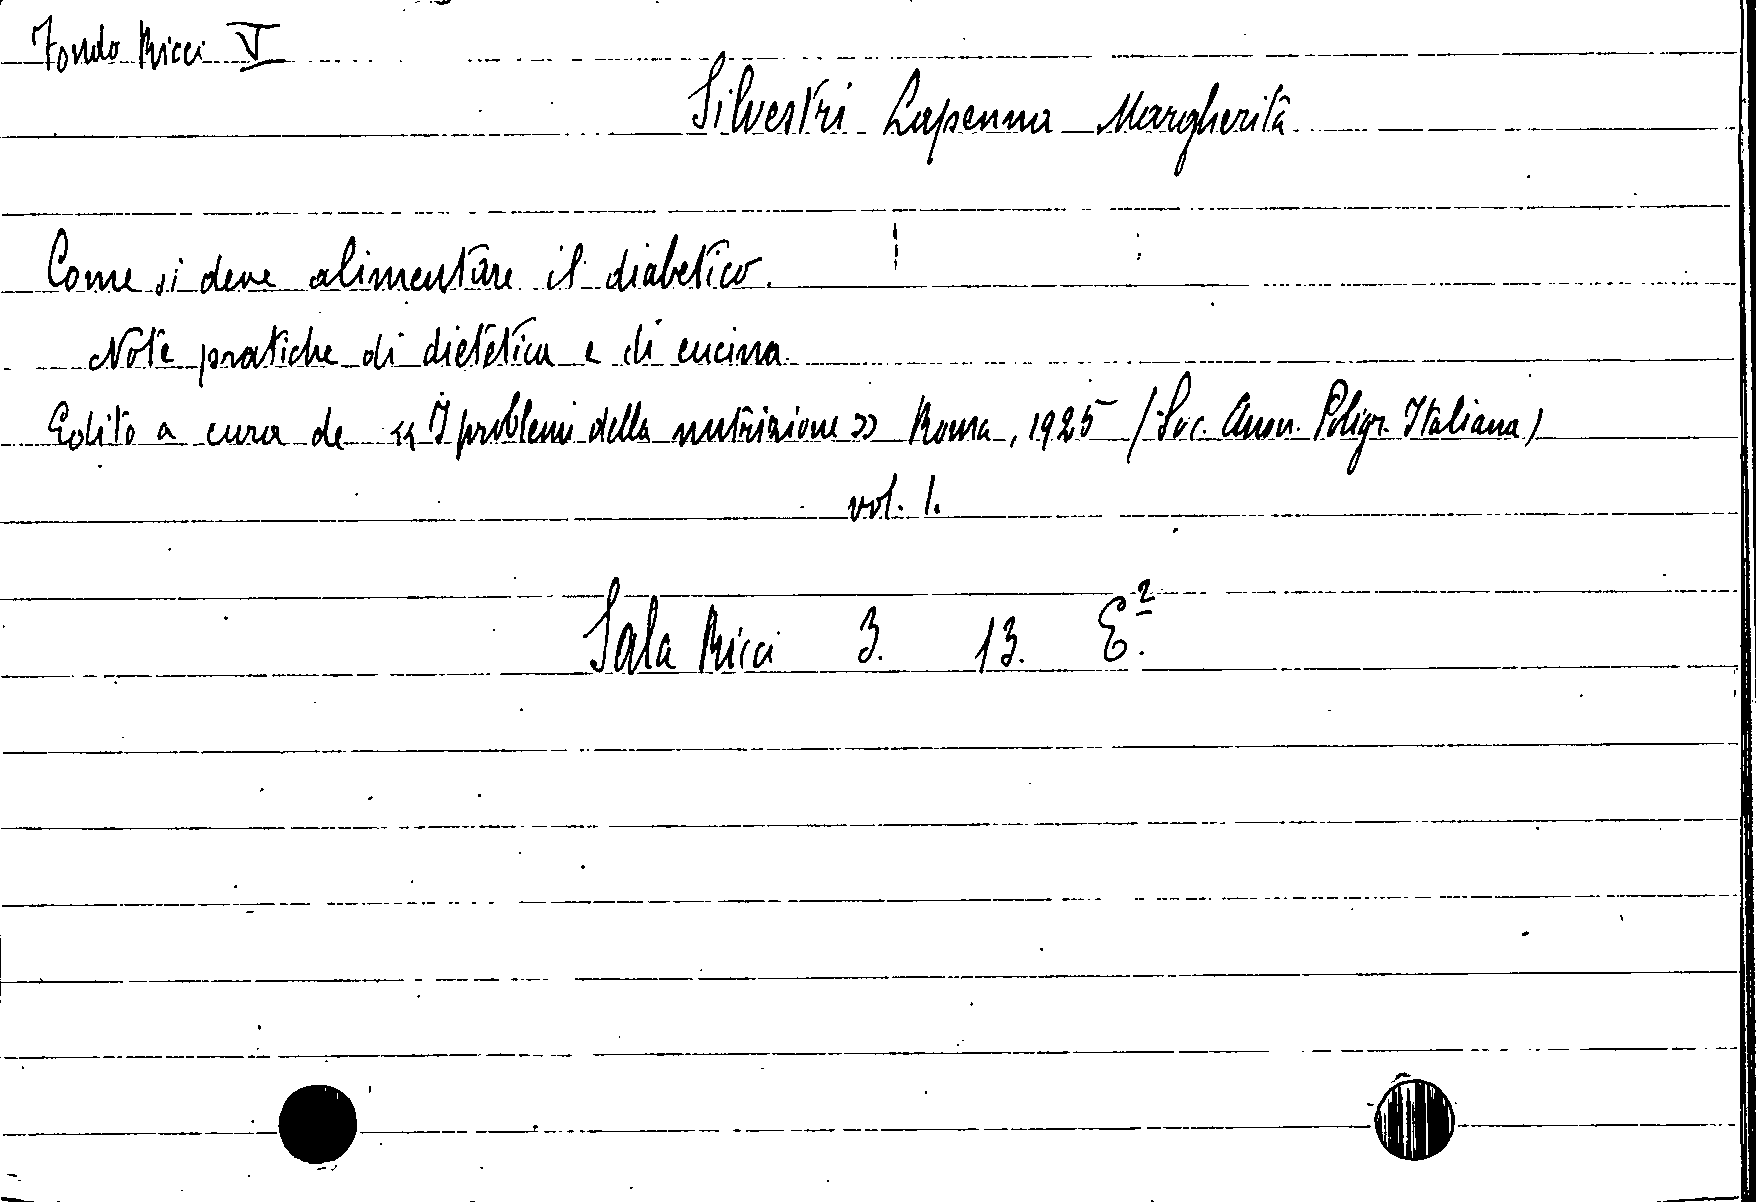 Fondo Ricci V
Silvestri Lapenna Margherita
Come si deve alimentare il diabetico.
Note pratiche di dietetica e di cucina
Edito a cura de « I problemi della nutrizione » Roma, 1925 (Soc. Anon. Poligr. Italiana)
vol. 1.
Sala Ricci 3. 13. E².